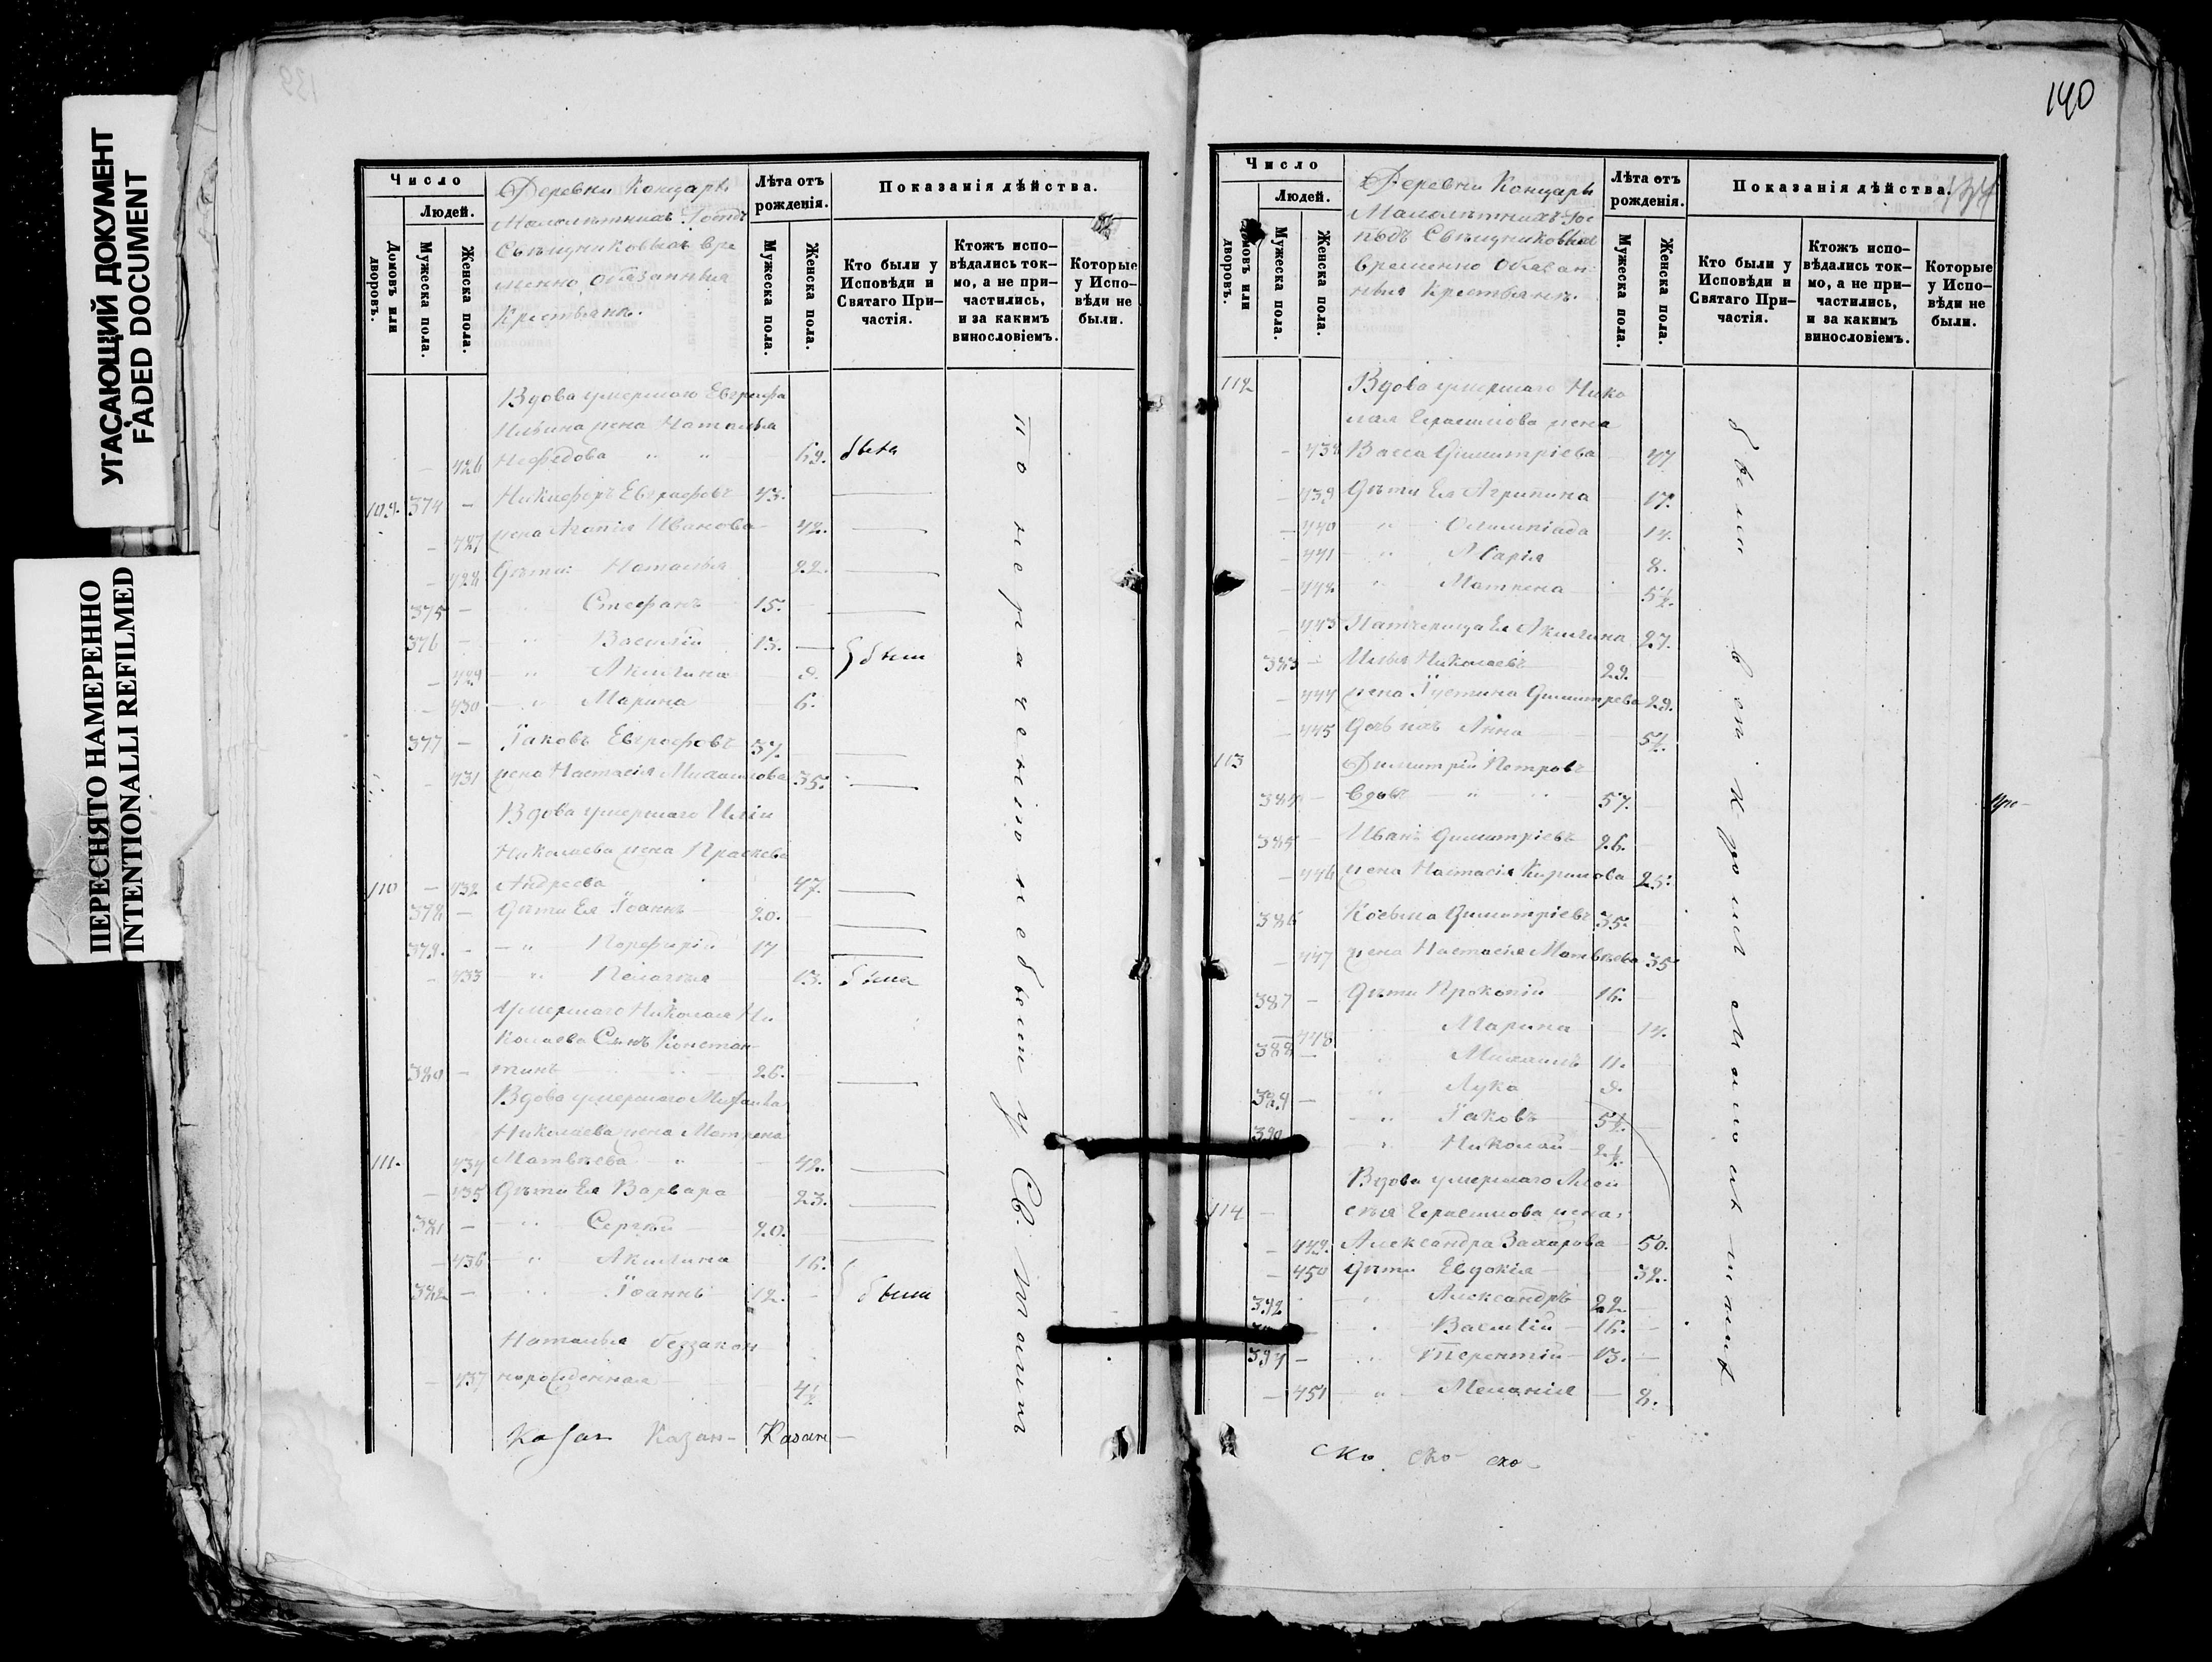 УГАСАЮЩИЙ ДОКУМЕНТ
FADED DOCUMENT
ПЕРЕСНЯТО НАМЕРЕННО
INTENTIONALLI REFILMED
139
Число
Людей.
Домовъ или дворовъ.
Мужеска пола.
Женска пола.
Деревни Концарь
Малолѣтнихъ Господъ
Свѣшниковыхъ Вре
менно Обязанныя
Крестьяне.
Лѣта отъ рожденія.
Мужеска пола.
Женска пола.
Показанія дѣйства.
Кто были у Исповѣди и Святаго Причастія.
Ктожъ исповѣдались токмо, а не причастились, и за какимъ винословіемъ.
Которые у Исповѣди не были.
Вдова умершаго Евграфа
Ильина жена Наталья
426 Нефедова 69. была
109. 374 Никифоръ Евграфовъ 43.
427 жена Агапія Иванова 42.
428 Дѣти: Наталья 22.
375 Стефанъ 15.
376 Василій 13.
429 Акилина 9. были
430 Марина 6.
377 Іаковъ Евграфовъ 37.
431 жена Настасія Михайлова 35.
Вдова умершаго Иліи
Николаева жена Праскева
110 432 Андреева 47.
378 Дѣти Ея Іоаннъ 20.
379. Порфирій 17
433 Пелагея 13. была
Умершаго Николая Ни
колаева Сынъ Констан
380 тинъ 26.
Вдова умершаго Михаила
Николаева жена Матрена
111. 434 Матвѣева 42.
435 Дѣти Ея Варвара 23.
381 Сергѣй 20.
436 Акилина 16.
382 Іоаннъ 12. были
Наталья беззакон
437 норожденная 4½
По нераченію не были у Св. Таинъ
Казан Казан- Казан-
140
Число
Людей.
Домовъ или дворовъ.
Мужеска пола.
Женска пола.
Деревни Концарь
Малолѣтнихъ Гос
подъ Свѣшниковыхъ
Временно Обязан
ныя Крестьяне.
Лѣта отъ рожденія.
Мужеска пола.
Женска пола.
Показанія дѣйства.
Кто были у Исповѣди и Святаго Причастія.
Ктожъ исповѣдались токмо, а не причастились, и за какимъ винословіемъ.
Которые у Исповѣди не были.
112 Вдова умершаго Нико
лая Герасимова жена
438 Васса Димитріева 47
439 Дѣти Ея Агрипина 17.
440 Олимпіада 14.
441 Марія 8.
442 Матрена 5½.
443 Падчерица Ея Акилина 27.
383 Илья Николаевъ 29.
444 жена Іустина Димитрева 29.
445 Дочь ихъ Анна 5½.
113 Димитрій Петровъ
384 вдовъ 57.
385 Иванъ Димитріевъ 26.
446 жена Настасія Кирилова 25.
386 Косьма Димитріевъ 35.
447 жена Настасія Матвѣева 35
387 Дѣти Прокопій 16.
448 Марина 14.
388 Михаилъ 11.
389 Лука 9.
390 Іаковъ 5½.
Николай 2½.
Вдова умершаго Алек
114 сѣя Герасимова жена
449. Александра Захарова 50.
450 Дѣти Евдокія 32.
392 Александръ 22.
Василій 16.
394 Терентій 13.
451 Меланія 8.
были всѣ кромѣ Малолѣтнихъ
ско ско- ско-